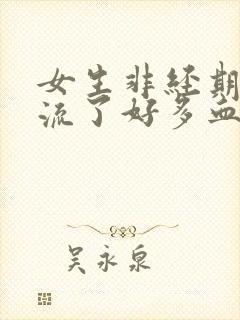 女生非经期
流了好多血
吴永泉